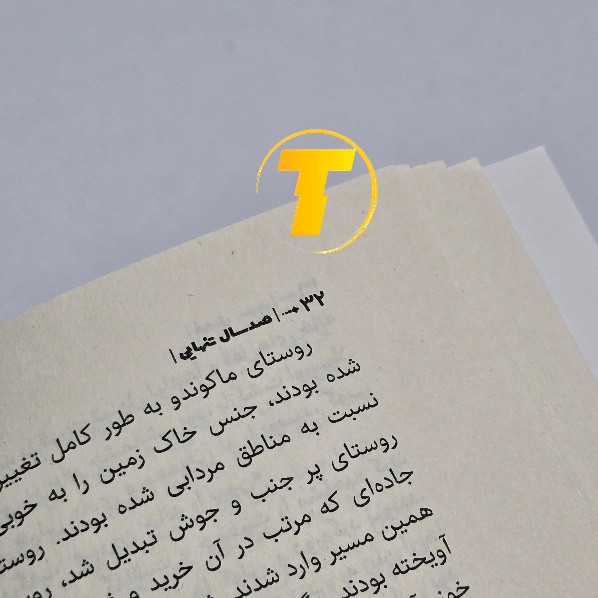 T
۳۲ ⟶ | صد سال تنهایی |
روستای ماکوندو به طور کامل تغییر
شده بودند، جنس خاک زمین را به خوبی
نسبت به مناطق مردابی شده بودند. روستا
روستای پر جنب و جوش تبدیل شد،
جاده‌ای که مرتب در آن خرید و
همین مسیر وارد شدند
آویخته بودند